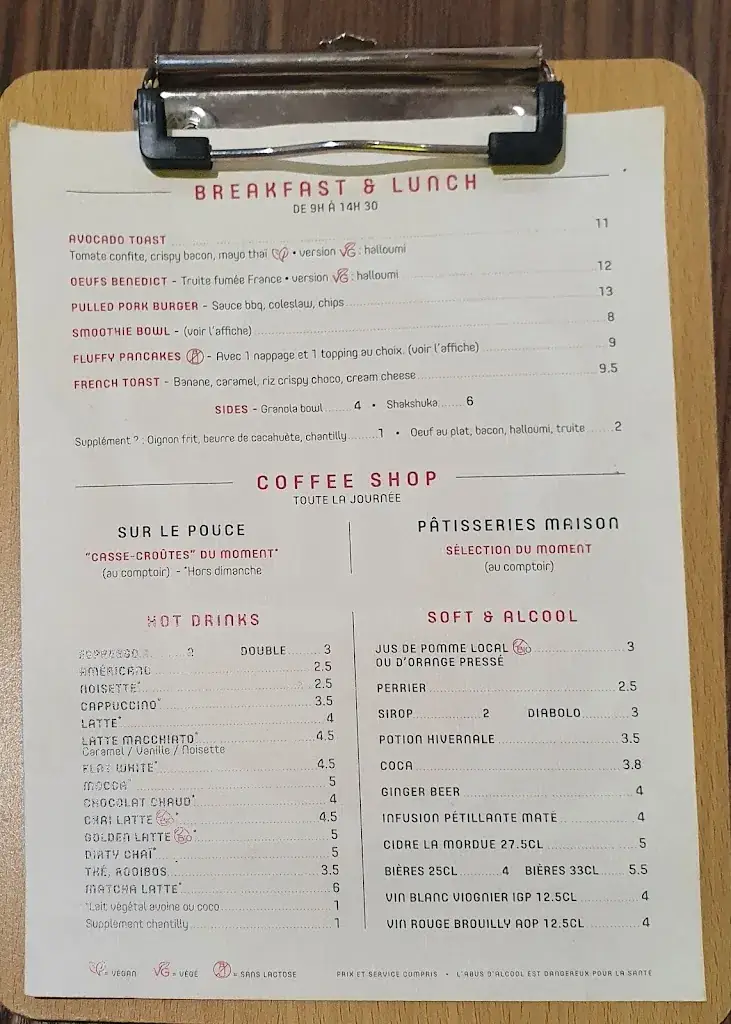 BREAKFAST & LUNCH
DE 9H À 14H 30
AVOCADO TOAST 11
Tomate confite, crispy bacon, mayo thaï • version VG : halloumi
OEUFS BENEDICT - Truite fumée France • version VG : halloumi 12
PULLED PORK BURGER - Sauce bbq, coleslaw, chips 13
SMOOTHIE BOWL - (voir l'affiche) 8
FLUFFY PANCAKES - Avec 1 nappage et 1 topping au choix. (voir l'affiche) 9
FRENCH TOAST - Banane, caramel, riz crispy choco, cream cheese 9.5
SIDES - Granola bowl 4 • Shakshuka 6
Supplément ? : Oignon frit, beurre de cacahuète, chantilly 1 • Oeuf au plat, bacon, halloumi, truite 2
COFFEE SHOP
TOUTE LA JOURNÉE
SUR LE POUCE
"CASSE-CROÛTES" DU MOMENT*
(au comptoir) - *Hors dimanche
PÂTISSERIES MAISON
SÉLECTION DU MOMENT
(au comptoir)
HOT DRINKS
ESPRESSO 2 DOUBLE 3
AMÉRICANO 2.5
NOISETTE* 2.5
CAPPUCCINO* 3.5
LATTE* 4
LATTE MACCHIATO* 4.5
Caramel / Vanille / Noisette
FLAT WHITE* 4.5
MOCCA* 5
CHOCOLAT CHAUD* 4
CHAI LATTE BIO * 4.5
GOLDEN LATTE BIO * 5
DIRTY CHAÏ* 5
THÉ, ROOIBOS 3.5
MATCHA LATTE* 6
*Lait végétal avoine ou coco 1
Supplément chantilly 1
SOFT & ALCOOL
JUS DE POMME LOCAL BIO 3
OU D'ORANGE PRESSÉ
PERRIER 2.5
SIROP 2 DIABOLO 3
POTION HIVERNALE 3.5
COCA 3.8
GINGER BEER 4
INFUSION PÉTILLANTE MATÉ 4
CIDRE LA MORDUE 27.5CL 5
BIÈRES 25CL 4 BIÈRES 33CL 5.5
VIN BLANC VIOGNIER IGP 12.5CL 4
VIN ROUGE BROUILLY AOP 12.5CL 4
= VÉGAN VG = VÉGÉ = SANS LACTOSE PRIX ET SERVICE COMPRIS • L'ABUS D'ALCOOL EST DANGEREUX POUR LA SANTÉ